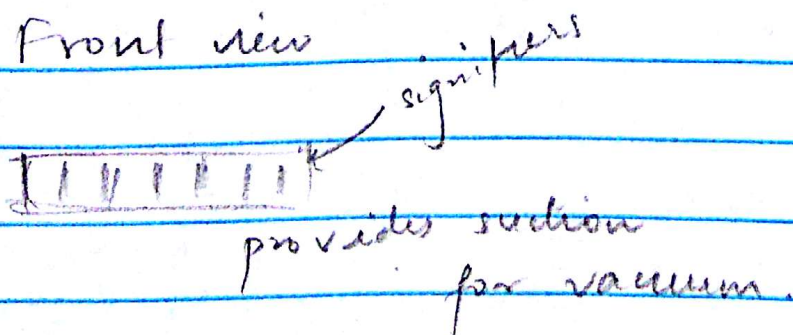 Front view
signifiers
provides suction
for vacuum.